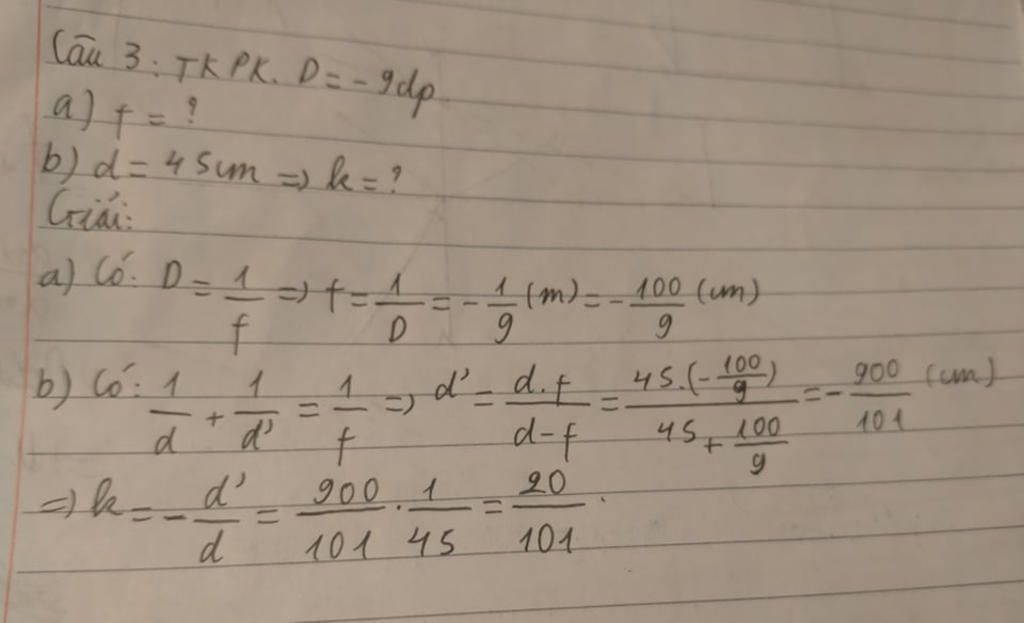 Câu 3: TKPK. D = -9dp
a) f = ?
b) d = 45cm => k = ?
Giải:
a) Có: D = 1/f => f = 1/D = -1/9 (m) = -100/9 (cm)
b) Có: 1/d + 1/d' = 1/f => d' = d.f/(d-f) = 45.(-100/9)/(45+100/9) = -900/101 (cm)
=> k = -d'/d = 900/101 . 1/45 = 20/101.